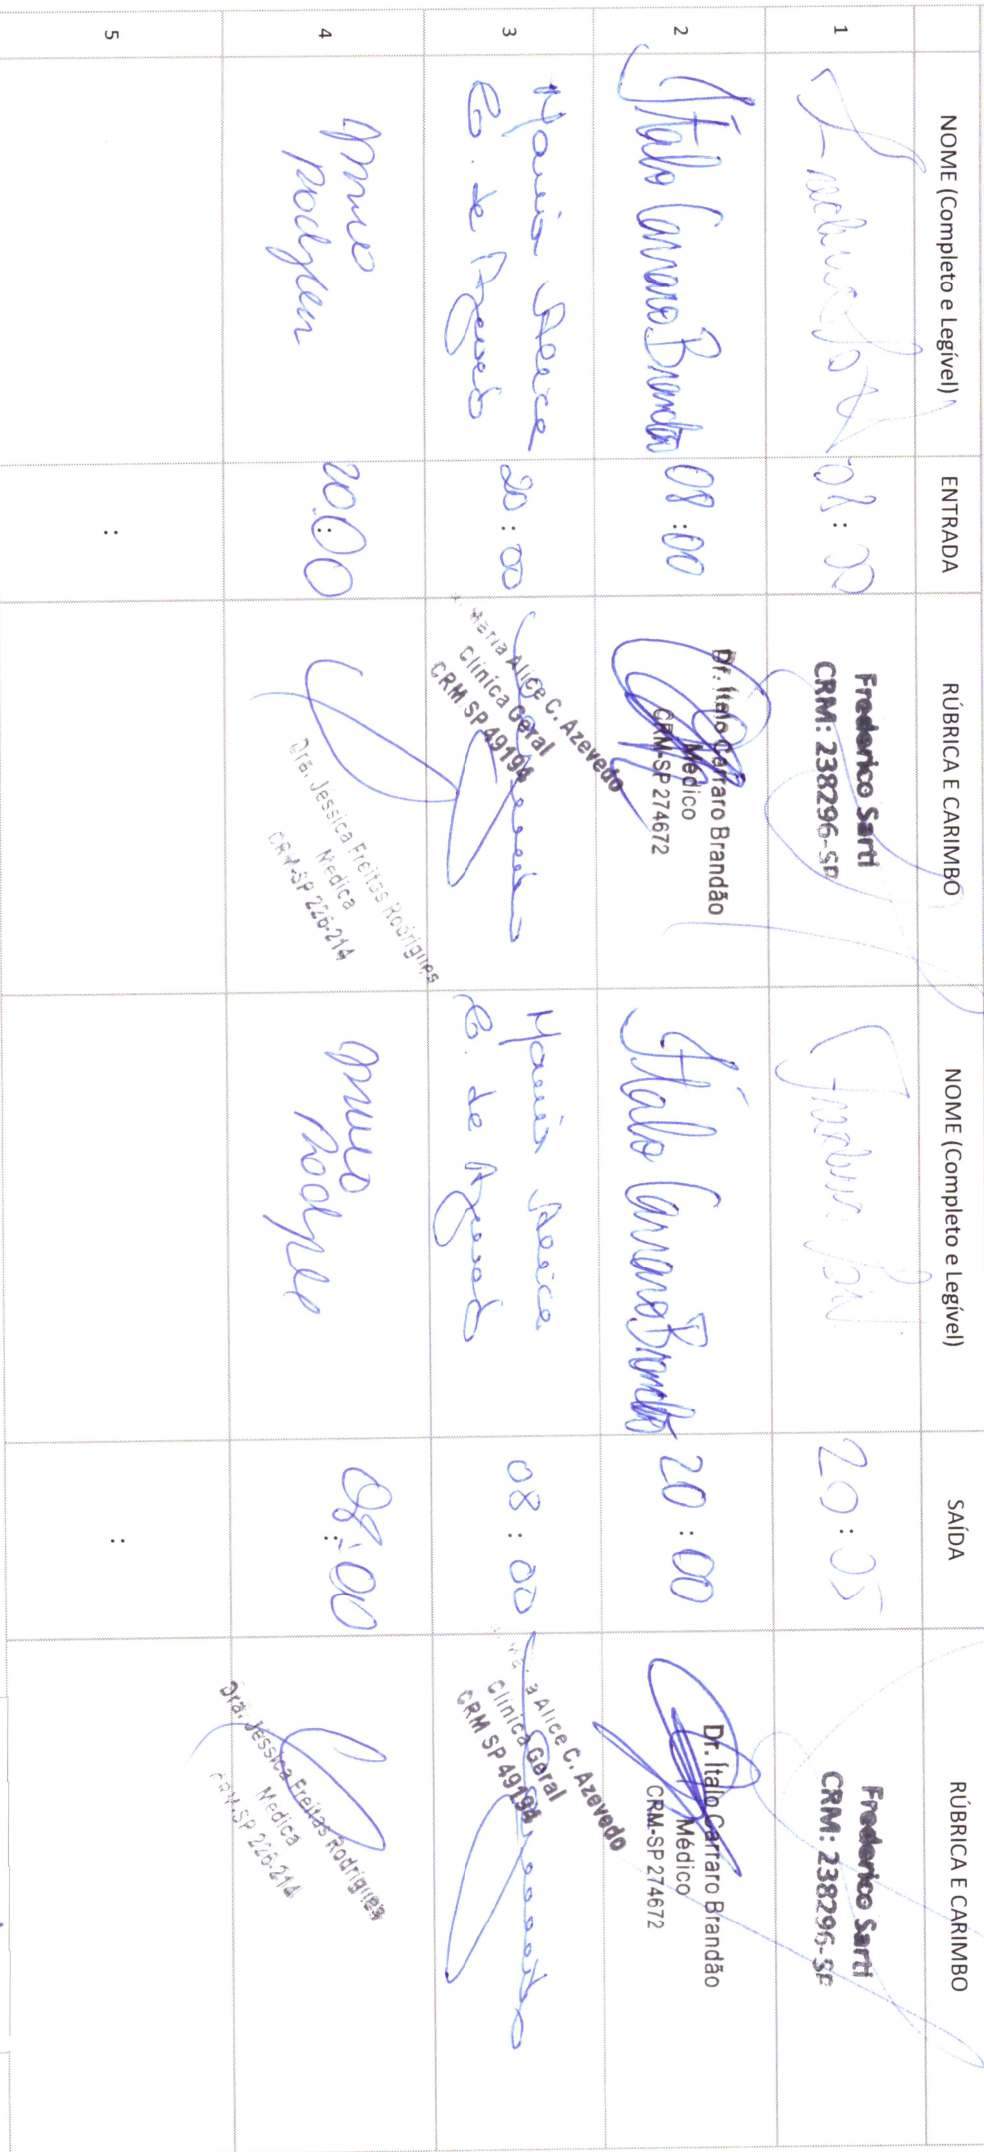 NOME (Completo e Legível) ENTRADA RÚBRICA E CARIMBO NOME (Completo e Legível) SAÍDA RÚBRICA E CARIMBO
1 08:00
Frederico Sarti
CRM: 238296-SP
20:05
Frederico Sarti
CRM: 238296-SP
2 Ítalo Carraro Brandão 08:00
Dr. Ítalo Carraro Brandão
Médico
CRM-SP 274672
Ítalo Carraro Brandão 20:00
Dr. Ítalo Carraro Brandão
Médico
CRM-SP 274672
3 Maria Alice
C. de Azevedo
20:00
Maria Alice C. Azevedo
Clínica Geral
CRM SP 49194
Maria Alice
C. de Azevedo
08:00
Alice C. Azevedo
Clínica Geral
CRM SP 49194
4
20:00
Dra. Jessica Freitas Rodrigues
Médica
CRM-SP 226-214
08:00
Dra. Jessica Freitas Rodrigues
Médica
CRM-SP 226-214
5 : :